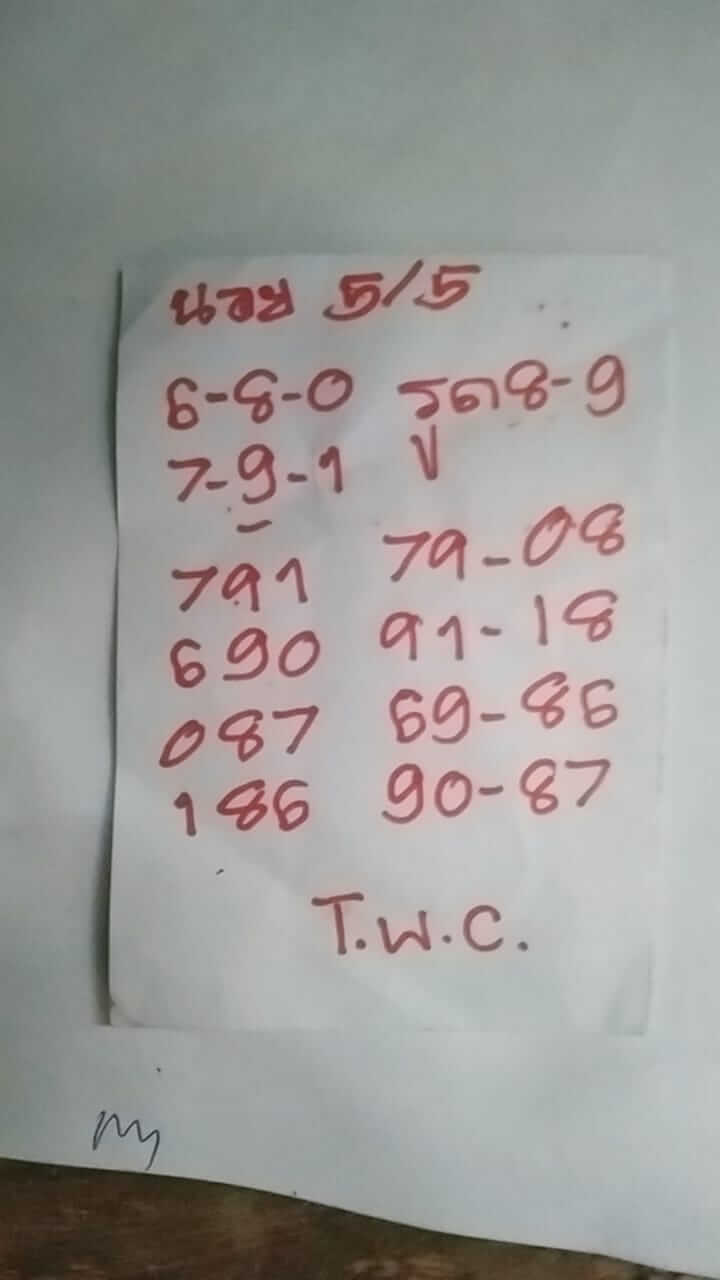 นอย 5/5
6-8-0 รูด 8-9
7-9-1
791 79-08
690 91-18
087 69-86
186 90-87
T.W.C.